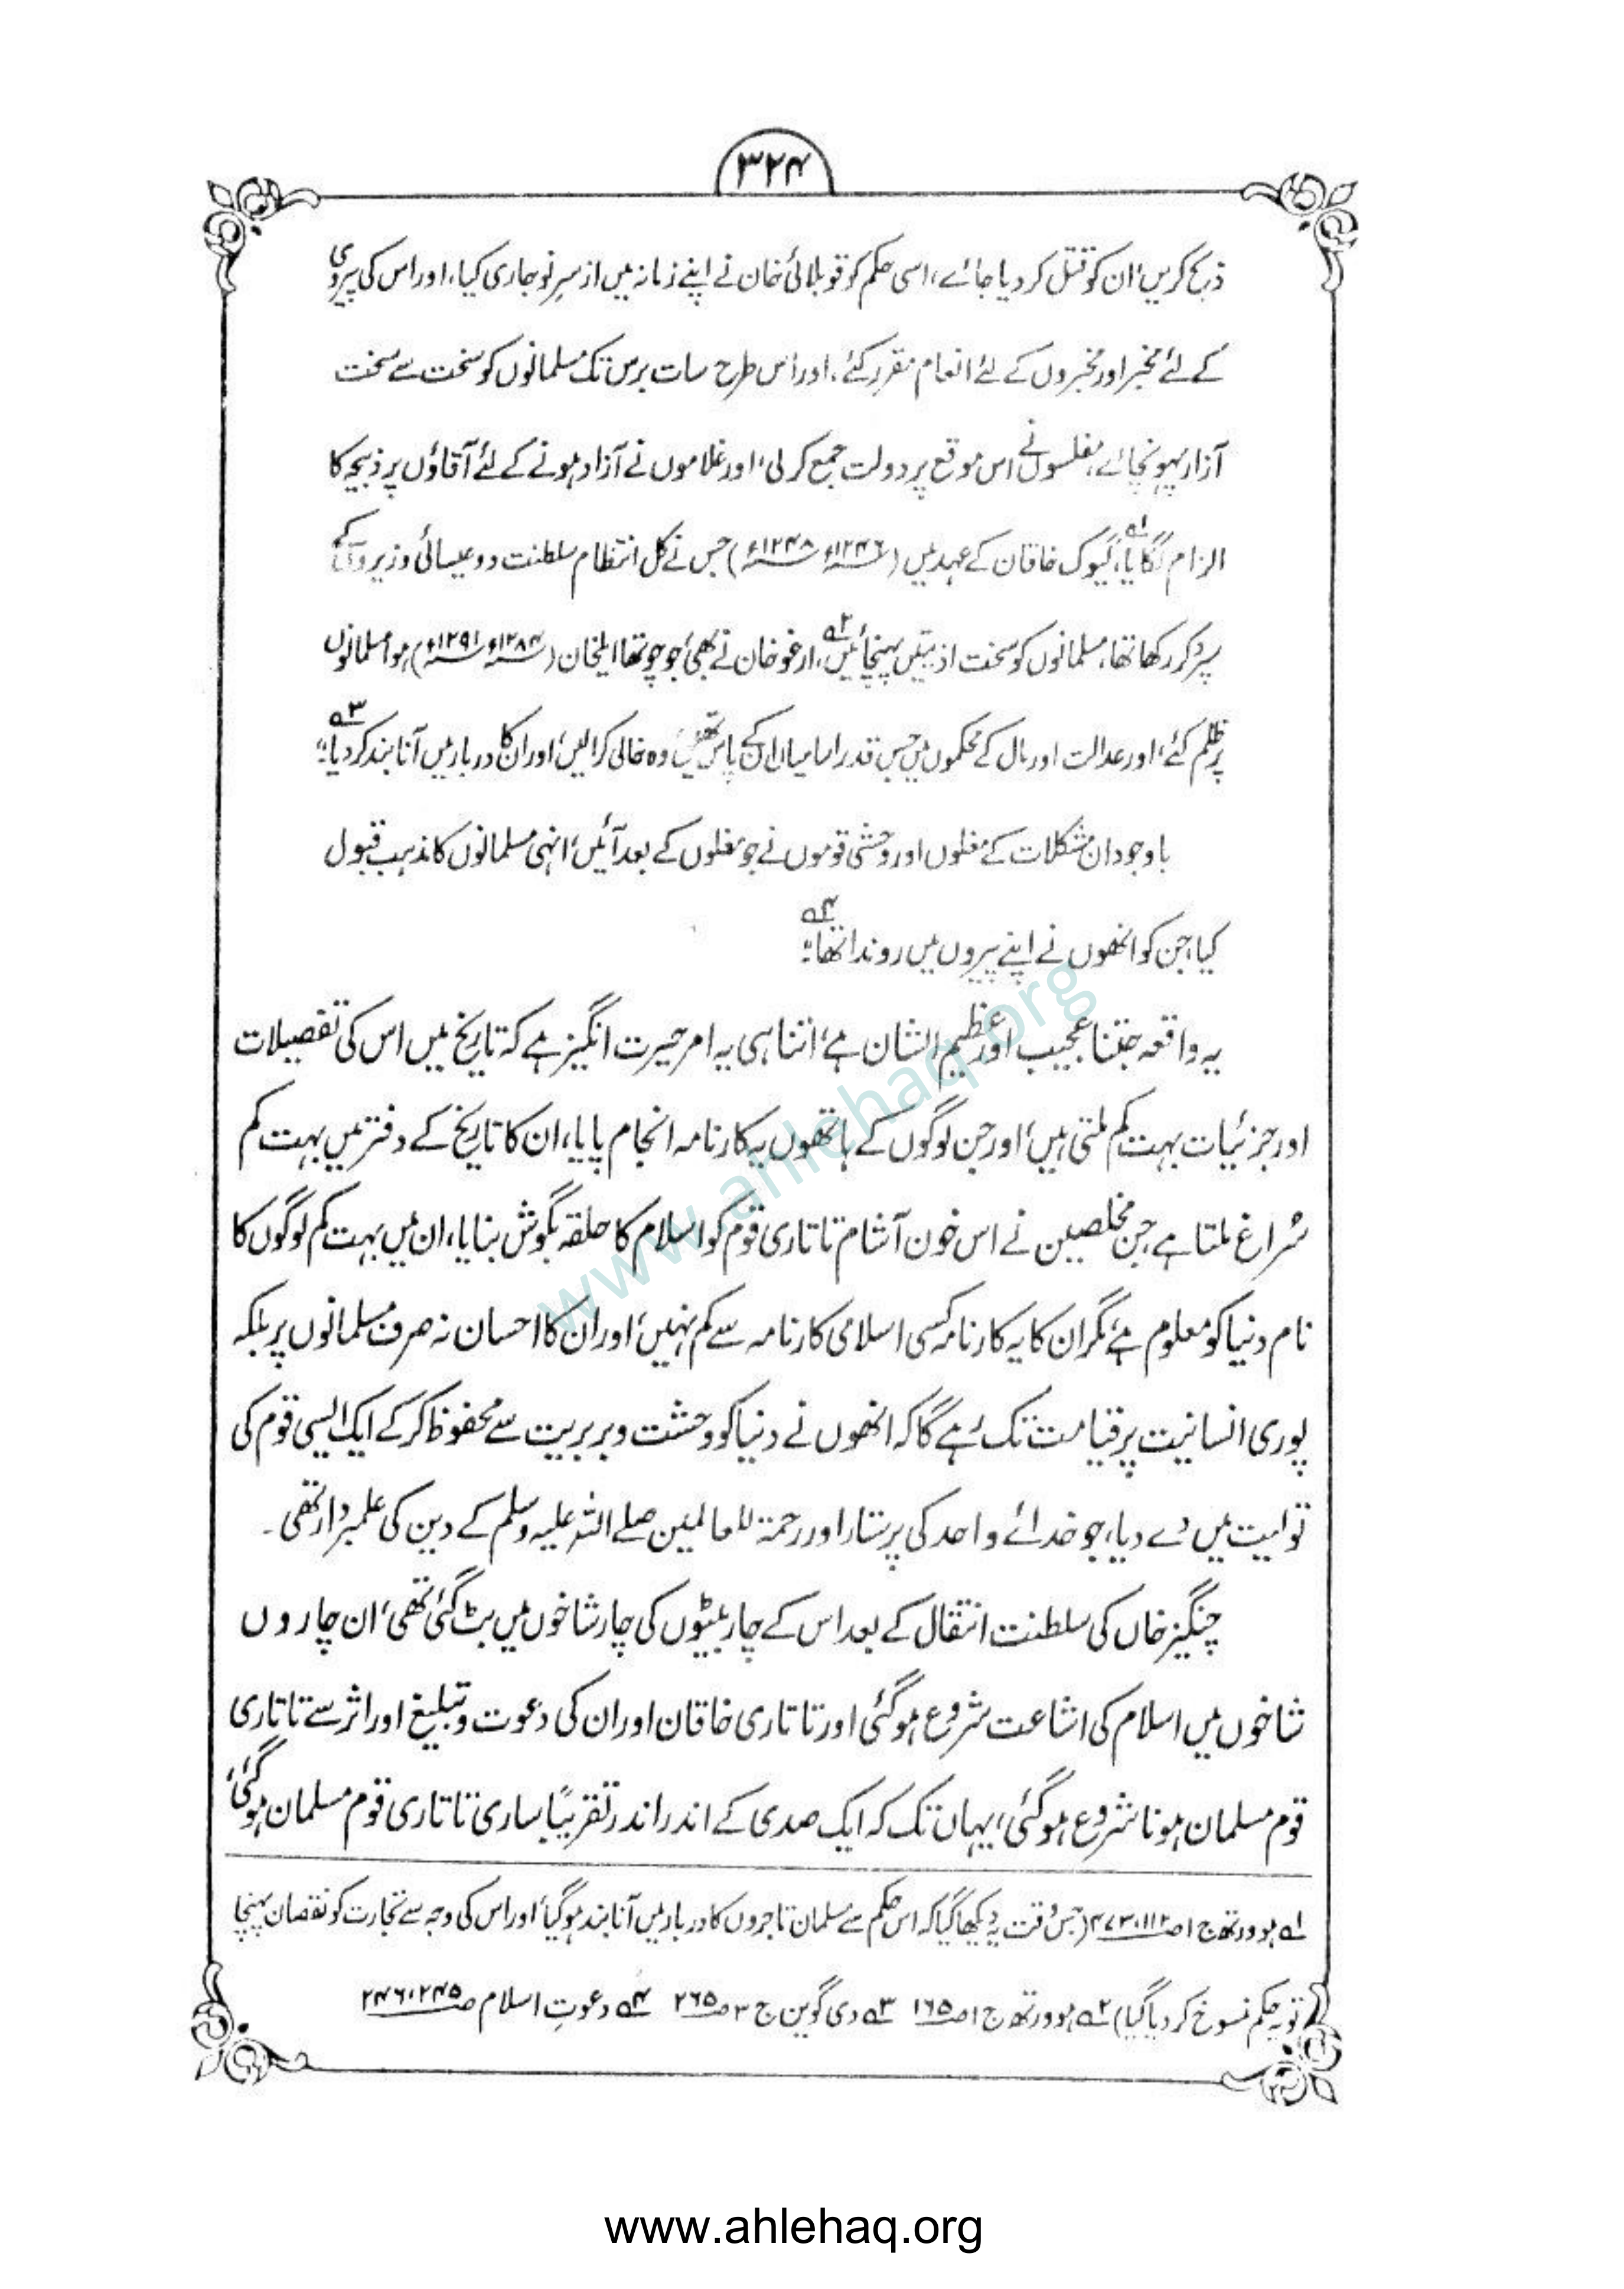 ۳۲۴
ذبح کریں، ان کو قتل کر دیا جائے، اسی حکم کو قوبلائی خان نے اپنے زمانہ میں از سرِ نو جاری کیا، اور اس کی پیروی
کے لئے مخبر اور مخبروں کے لئے انعام مقرر کئے، اور اس طرح سات برس تک مسلمانوں کو سخت سے سخت
آزار پہونچائے، مفلسوں نے اس موقع پر دولت جمع کر لی، اور غلاموں نے آزاد ہونے کے لئے آقاؤں پر ذبیحہ کا
الزام لگایا،۱ے گیوک خاقان کے عہد میں (۱۲۴۶ء ۱۲۴۸ء) جس نے کل انتظام سلطنت دو عیسائی وزیروں کے
سپرد کر رکھا تھا، مسلمانوں کو سخت اذیتیں پہنچائیں،۲ے ارغو خان نے بھی جو چوتھا ایلخان (۱۲۸۴ء ۱۲۹۱ء) ہوا مسلمانوں
پر ظلم کئے، اور عدالت اور مال کے محکموں میں جس قدر اسامیاں ان کے پاس تھیں وہ خالی کرالیں، اور ان کا دربار میں آنا بند کر دیا؛۳ے
باوجود ان مشکلات کے مغلوں اور وحشی قوموں نے جو مغلوں کے بعد آئیں، انہی مسلمانوں کا مذہب قبول
کیا، جن کو انھوں نے اپنے پیروں میں روندا تھا؛۴ے
یہ واقعہ جتنا عجیب اور عظیم الشان ہے، اتنا ہی یہ امر حیرت انگیز ہے کہ تاریخ میں اس کی تفصیلات
اور جزئیات بہت کم ملتی ہیں، اور جن لوگوں کے ہاتھوں یہ کارنامہ انجام پایا، ان کا تاریخ کے دفتر میں بہت کم
سُراغ ملتا ہے جن مخلصین نے اس خون آشام تاتاری قوم کو اسلام کا حلقہ بگوش بنایا، ان میں بہت کم لوگوں کا
نام دنیا کو معلوم ہے، مگر ان کا یہ کارنامہ کسی اسلامی کارنامہ سے کم نہیں، اور ان کا احسان نہ صرف مسلمانوں پر بلکہ
پوری انسانیت پر قیامت تک رہے گا کہ انھوں نے دنیا کو وحشت و بربریت سے محفوظ کر کے ایک ایسی قوم کی
تولیت میں دے دیا، جو خدائے واحد کی پرستار اور رحمۃ للعالمین صلے اللہ علیہ وسلم کے دین کی علمبردار تھی۔
چنگیز خاں کی سلطنت انتقال کے بعد اس کے چار بیٹوں کی چار شاخوں میں بٹ گئی تھی، ان چاروں
شاخوں میں اسلام کی اشاعت شروع ہو گئی اور تاتاری خاقان اور ان کی دعوت و تبلیغ اور اثر سے تاتاری
قوم مسلمان ہونا شروع ہو گئی، یہاں تک کہ ایک صدی کے اندر اندر تقریبًا ساری تاتاری قوم مسلمان ہو گئی،
۱ے ہوورتھ ج ۱ ص ۱۱۲، ۲۷۳ (جس وقت یہ دیکھا گیا کہ اس حکم سے مسلمان تاجروں کا دربار میں آنا بند ہو گیا، اور اس کی وجہ سے تجارت کو نقصان پہنچا
تو یہ حکم منسوخ کر دیا گیا) ۲ے ہوورتھ ج ۱ ص ۱۶۵ ۳ے دی گوین ج ۳ ص ۲۶۵ ۴ے دعوتِ اسلام ص ۲۴۵، ۲۴۶
www.ahlehaq.org
www.ahlehaq.org